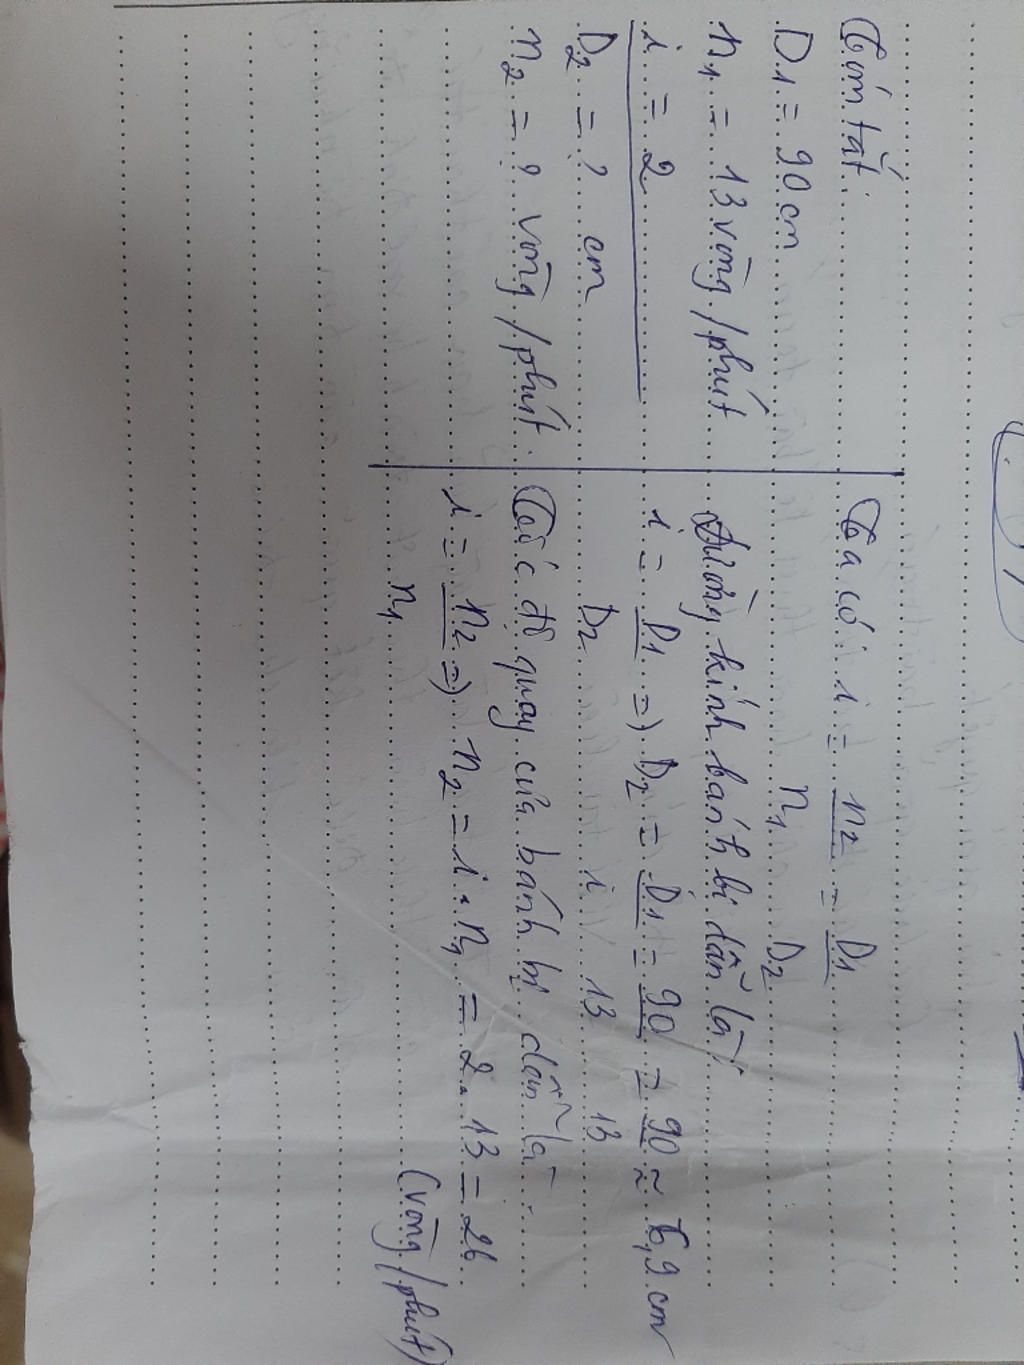 Tóm tắt:
D1 = 90 cm
n1 = 13 vòng/phút
i = 2
D2 = ? cm
n2 = ? vòng/phút.
Ta có: i = n2/n1 = D1/D2
Đường kính bánh bị dẫn là:
i = D1/D2 => D2 = D1/i = 90/13 = 90/13 ≈ 6,9 cm
Tốc độ quay của bánh bị dẫn là:
i = n2/n1 => n2 = i . n1 = 2 . 13 = 26
(vòng/phút)